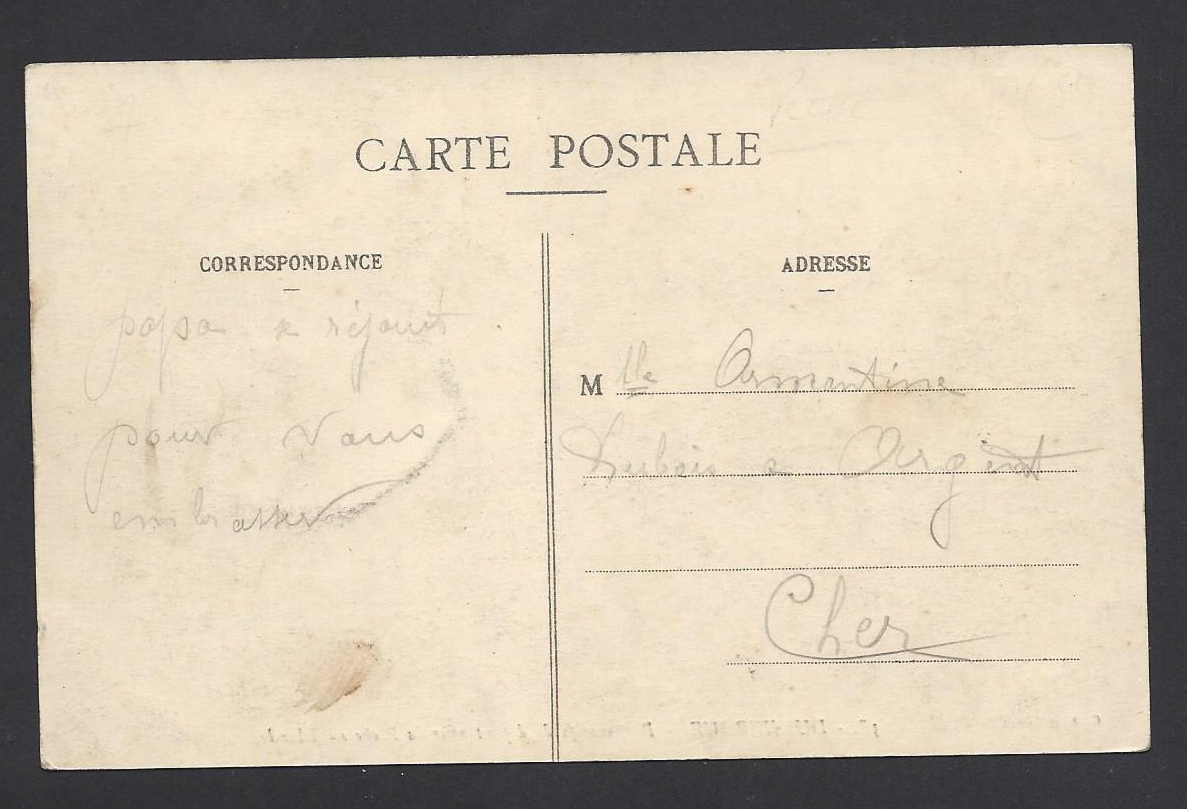 CARTE POSTALE
CORRESPONDANCE
ADRESSE
papa se réjouit
pour vous
embrasser
Mlle Armentine
Dubois a Argent
Cher